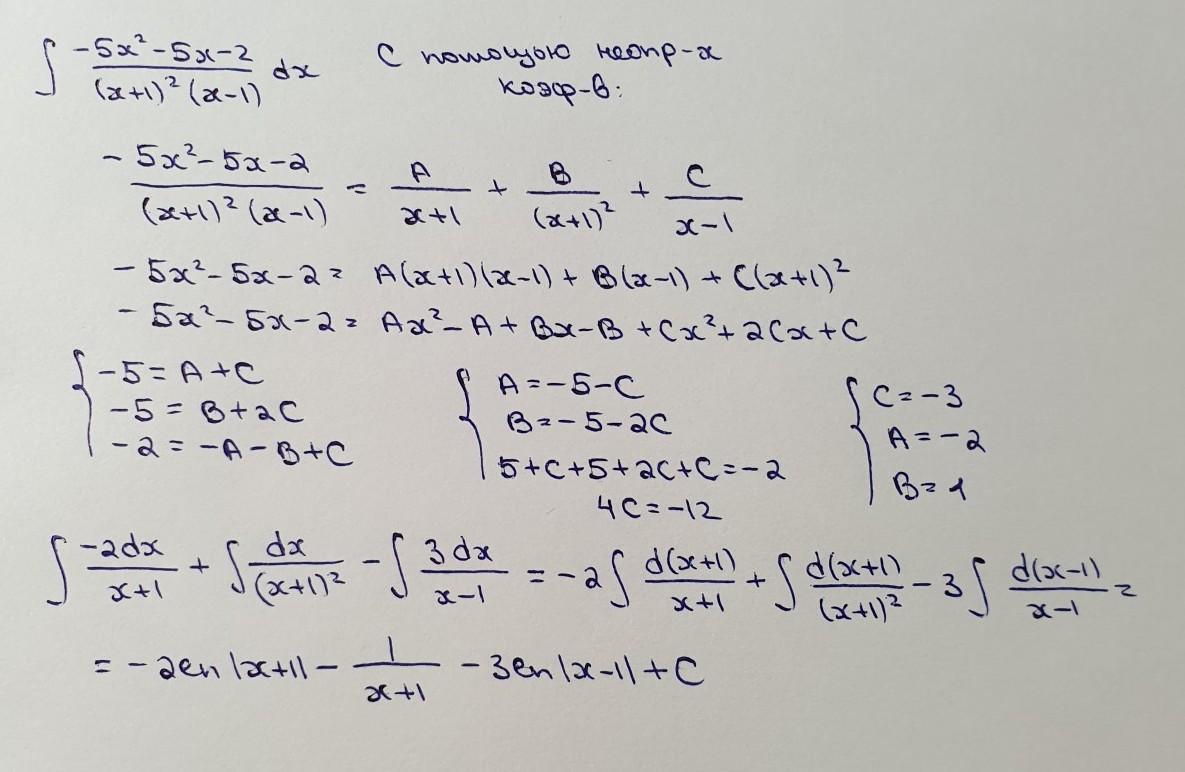 ∫ (-5x²-5x-2)/((x+1)²(x-1)) dx С помощью неопр-х
коэф-в:
(-5x²-5x-2)/((x+1)²(x-1)) = A/(x+1) + B/(x+1)² + C/(x-1)
-5x²-5x-2 = A(x+1)(x-1) + B(x-1) + C(x+1)²
-5x²-5x-2 = Ax²-A+Bx-B+Cx²+2Cx+C
{ -5=A+C
-5=B+2C
-2=-A-B+C
{ A=-5-C
B=-5-2C
5+C+5+2C+C=-2
4C=-12
{ C=-3
A=-2
B=1
∫ -2dx/(x+1) + ∫ dx/(x+1)² - ∫ 3dx/(x-1) = -2∫ d(x+1)/(x+1) + ∫ d(x+1)/(x+1)² - 3∫ d(x-1)/(x-1) =
= -2ln|x+1| - 1/(x+1) - 3ln|x-1| + C